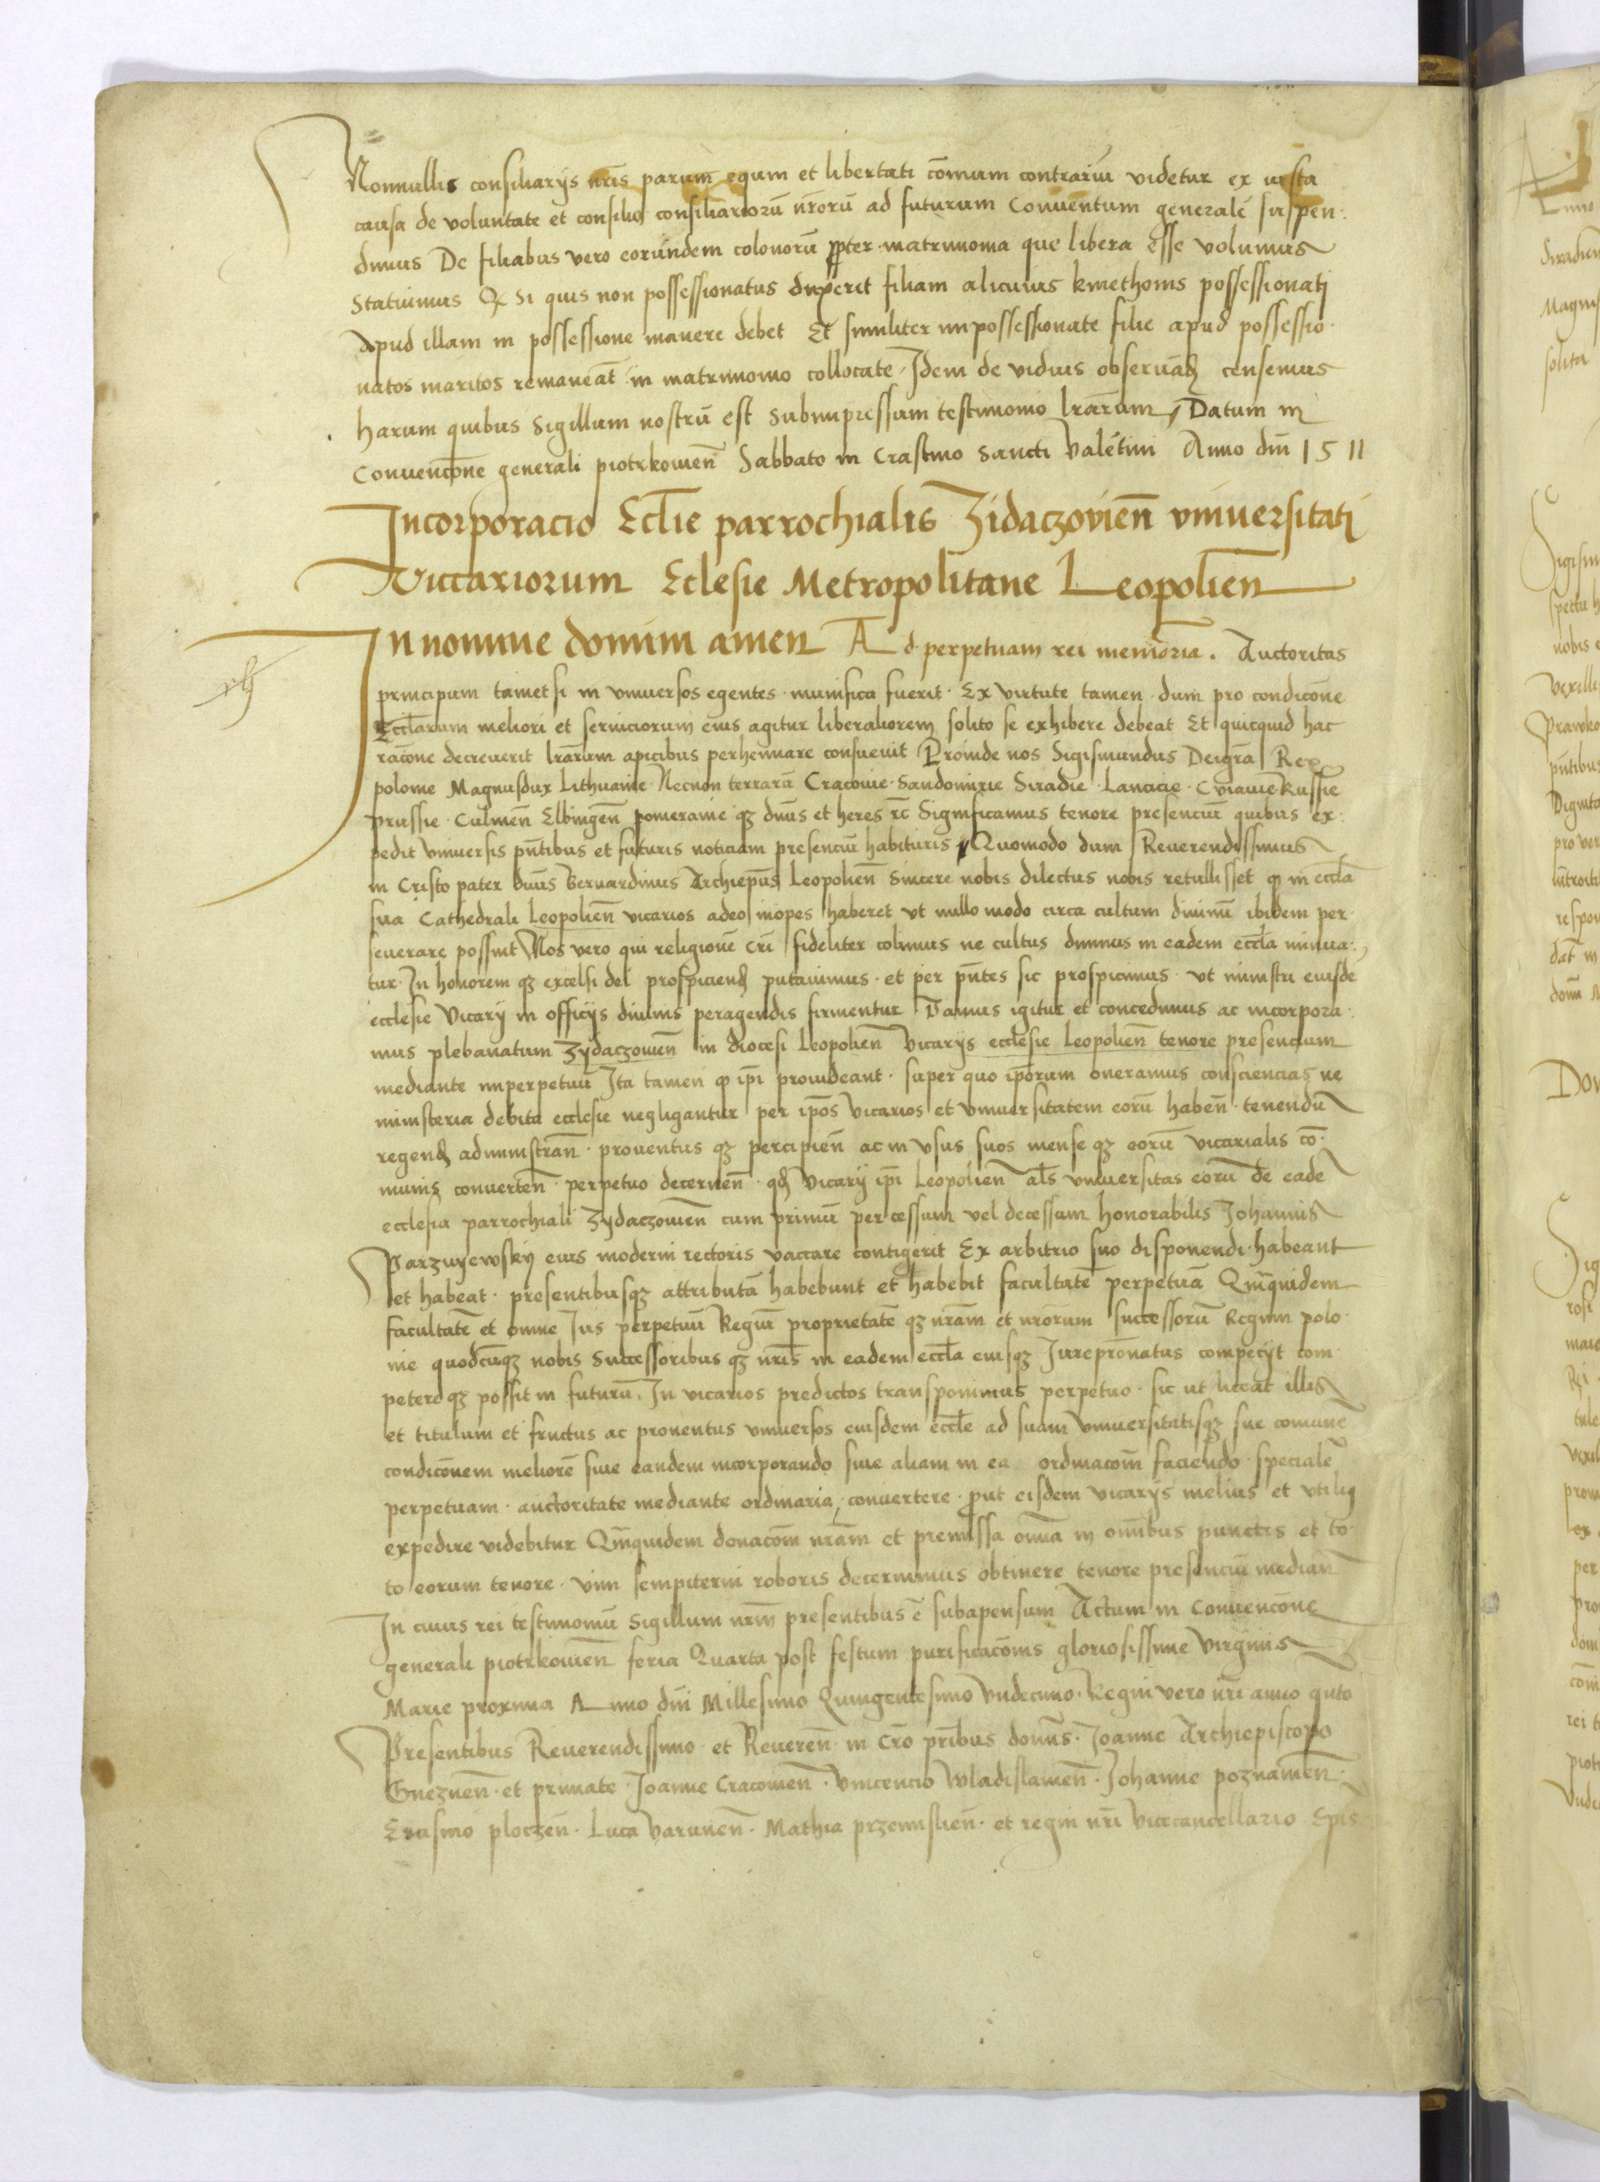 Nonnullis consiliarijs nr̄is parum equm et libertati com̄um contrariū videtur ex iusta
causa de voluntate et consilio consiliariorū nr̄orū ad futurum Conuentum generalē suspen·
dimus De filiabus vero eorundem colonorū ꝓpter matrimonia que libera Esse volumus
Statuimus Qꝫ Si quis non possessionatus duxerit filiam alicuius kmethonis possessionatj
Apud illam in possessione manere debet Et similiter impossessionate filie apud possessio·
natos maritos remaneāt in matrimonio collocate Idem de viduis obseruād censemus
harum quibus Sigillum nostrū est Subimpressum testimonio lrārum, Datum in
Conuencōne generali piotrkouien̄ Sabbato in Crastino Sancti Valētini Anno dn̄i 1511
Incorporacio Eclīe parrochialis Zidaczovien̄ vniuersitati
Viccariorum Eclesie Metropolitane Leopolien̄
In nomine domini amen Ad perpetuam rei memōria. Auctoritas
principum tametsi in vniuersos egentes munifica fuerit Ex virtute tamen dum pro condicōne
Eccl̄arum meliori et seruiciorum eius agitur liberaliorem solito se exhibere debeat Et quicquid hac
racōne decreuerit lrārum apicibus perhennare consueuit Proinde nos Sigismundus Deigrā Rex
polonie Magnusdux Lithuanie Necnon terrarū Cracouie Sandomirie Siradie Lancicie Cuiauie Russie
prussie Culmen̄ Elbingen̄ pomeranie qꝫ dn̄us et heres rc̄ Significamus tenore presenciū quibus ex·
pedit vniuersis pn̄tibus et futuris noticiam presenciū habituris Quomodo dum Reuerendissimus
in Cristo pater dn̄us Bernardinus Archiepūs Leopolien̄ Sincere nobis dilectus nobis retulisset qꝫ in eccl̄a
sua Cathedrali Leopolien̄ vicarios adeo inopes haberet vt nullo modo circa cultum diuinū ibidem per
seuerare possint Nos vero qui religionē Cr̄i fideliter colimus ne cultus diuinus in eadem eccl̄a minua·
tur In honorem qꝫ excelsi dei prospiciend putauimus et per pn̄tes sic prospicimus vt ministri eiusdē
ecclesie Vicarij in officijs diuinis peragendis firmentur Damus igitur et concedimus ac incorpora·
mus plebanatum Zydaczouien̄ in diocesi Leopolien̄ Vicarijs ecclesie Leopolien̄ tenore presencium
mediante imperpetuū Ita tamen qꝫ ip̄i prouideant super quo ip̄orum oneramus consciencias ne
ministeria debita ecclesie negligantur per ip̄os vicarios et vniuersitatem eorū haben̄ tenendū
regend administran̄ prouentus qꝫ percipien̄ ac in vsus suos mense qꝫ eorū vicarialis cō·
munis conuerten̄ perpetuo decernen̄ qd Vicarij ip̄i Leopolien̄ al̄s vniuersitas eorū de eadē
ecclesia parrochiali Zydaczouien̄ cum primū per cessum vel decessum honorabilis Johannis
Parzuyewsky eius moderni rectoris vaccare contigerit Ex arbitrio suo disponendi habeant
et habeat presentibusqꝫ attributā habebunt et habebit facultatē perpetuā Qm̄quidem
facultatē et omne Jus perpetuū Regiū proprietatē qꝫ nrām et nrōrum successorū Regum polo
nie quodcūqꝫ nobis Successoribus qꝫ nr̄is in eadem eccl̄a eiusqꝫ Jurepronatus competijt com
petere qꝫ possit in futurū In vicarios predictos transponimus perpetuo sic ut liceat illis
et titulum et fructus ac prouentus vniuersos eiusdem eccl̄e ad suam vniuersitatisqꝫ sue comunē
condicōnem meliorē siue eandem incorporando siue aliam in ea ordinacōm faciendo specialē
perpetuam auctoritate mediante ordinaria conuertere ꝓut eisdem vicarijs melius et vtiliꝰ
expedire videbitur Qm̄quidem donacōm nrām et premissa om̄ia in om̄ibus punctis et to
to eorum tenore vim sempiterni roboris decernimus obtinere tenore presenciū median̄
In cuius rei testimoniū Sigillum nrm̄ presentibus ē subapensum Actum in Conuencōne
generali piotrkouien̄ feria Quarta post festum purificacōnis gloriosissime virginis
Marie proxima Anno dn̄i Millesimo Quingentesimo Vndecimo Regni vero nr̄i anno qnto
Presentibus Reuerendissimo et Reueren̄ in Crō pr̄ibus domn̄s Joanne Archiepiscopo
Gneznen̄ et primate Joanne Cracouien̄ Vincencio Wladislauien̄ Johanne poznanien̄
Erasmo ploczen̄ Luca Varmien̄ Mathia przemislien̄ et regni nr̄i Vicecancellario Epīs